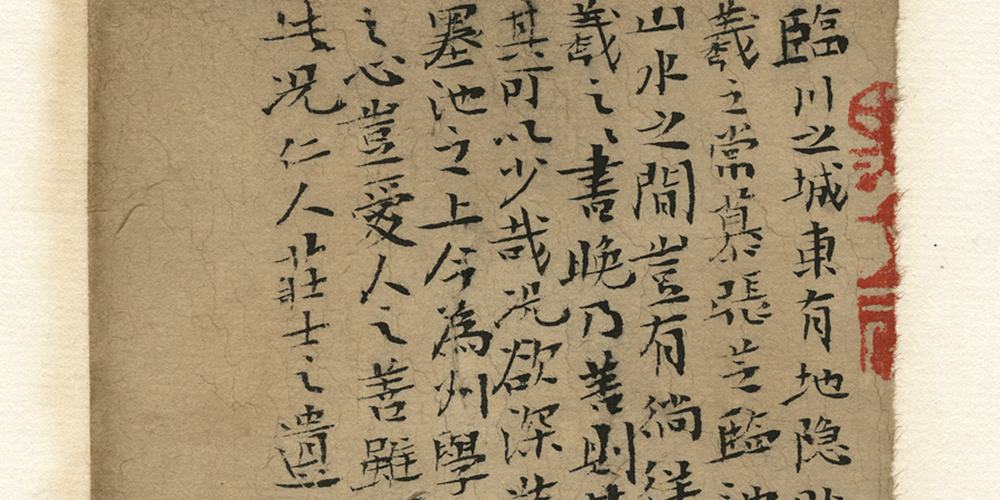 臨川之城東有地隐
羲之常慕張芝臨池
山水之間豈有徜徉
羲之之書晚乃善則其
其可以少哉况欲深造
墨池之上今為州學
之心豈愛人之善雖
此况仁人莊士之遺